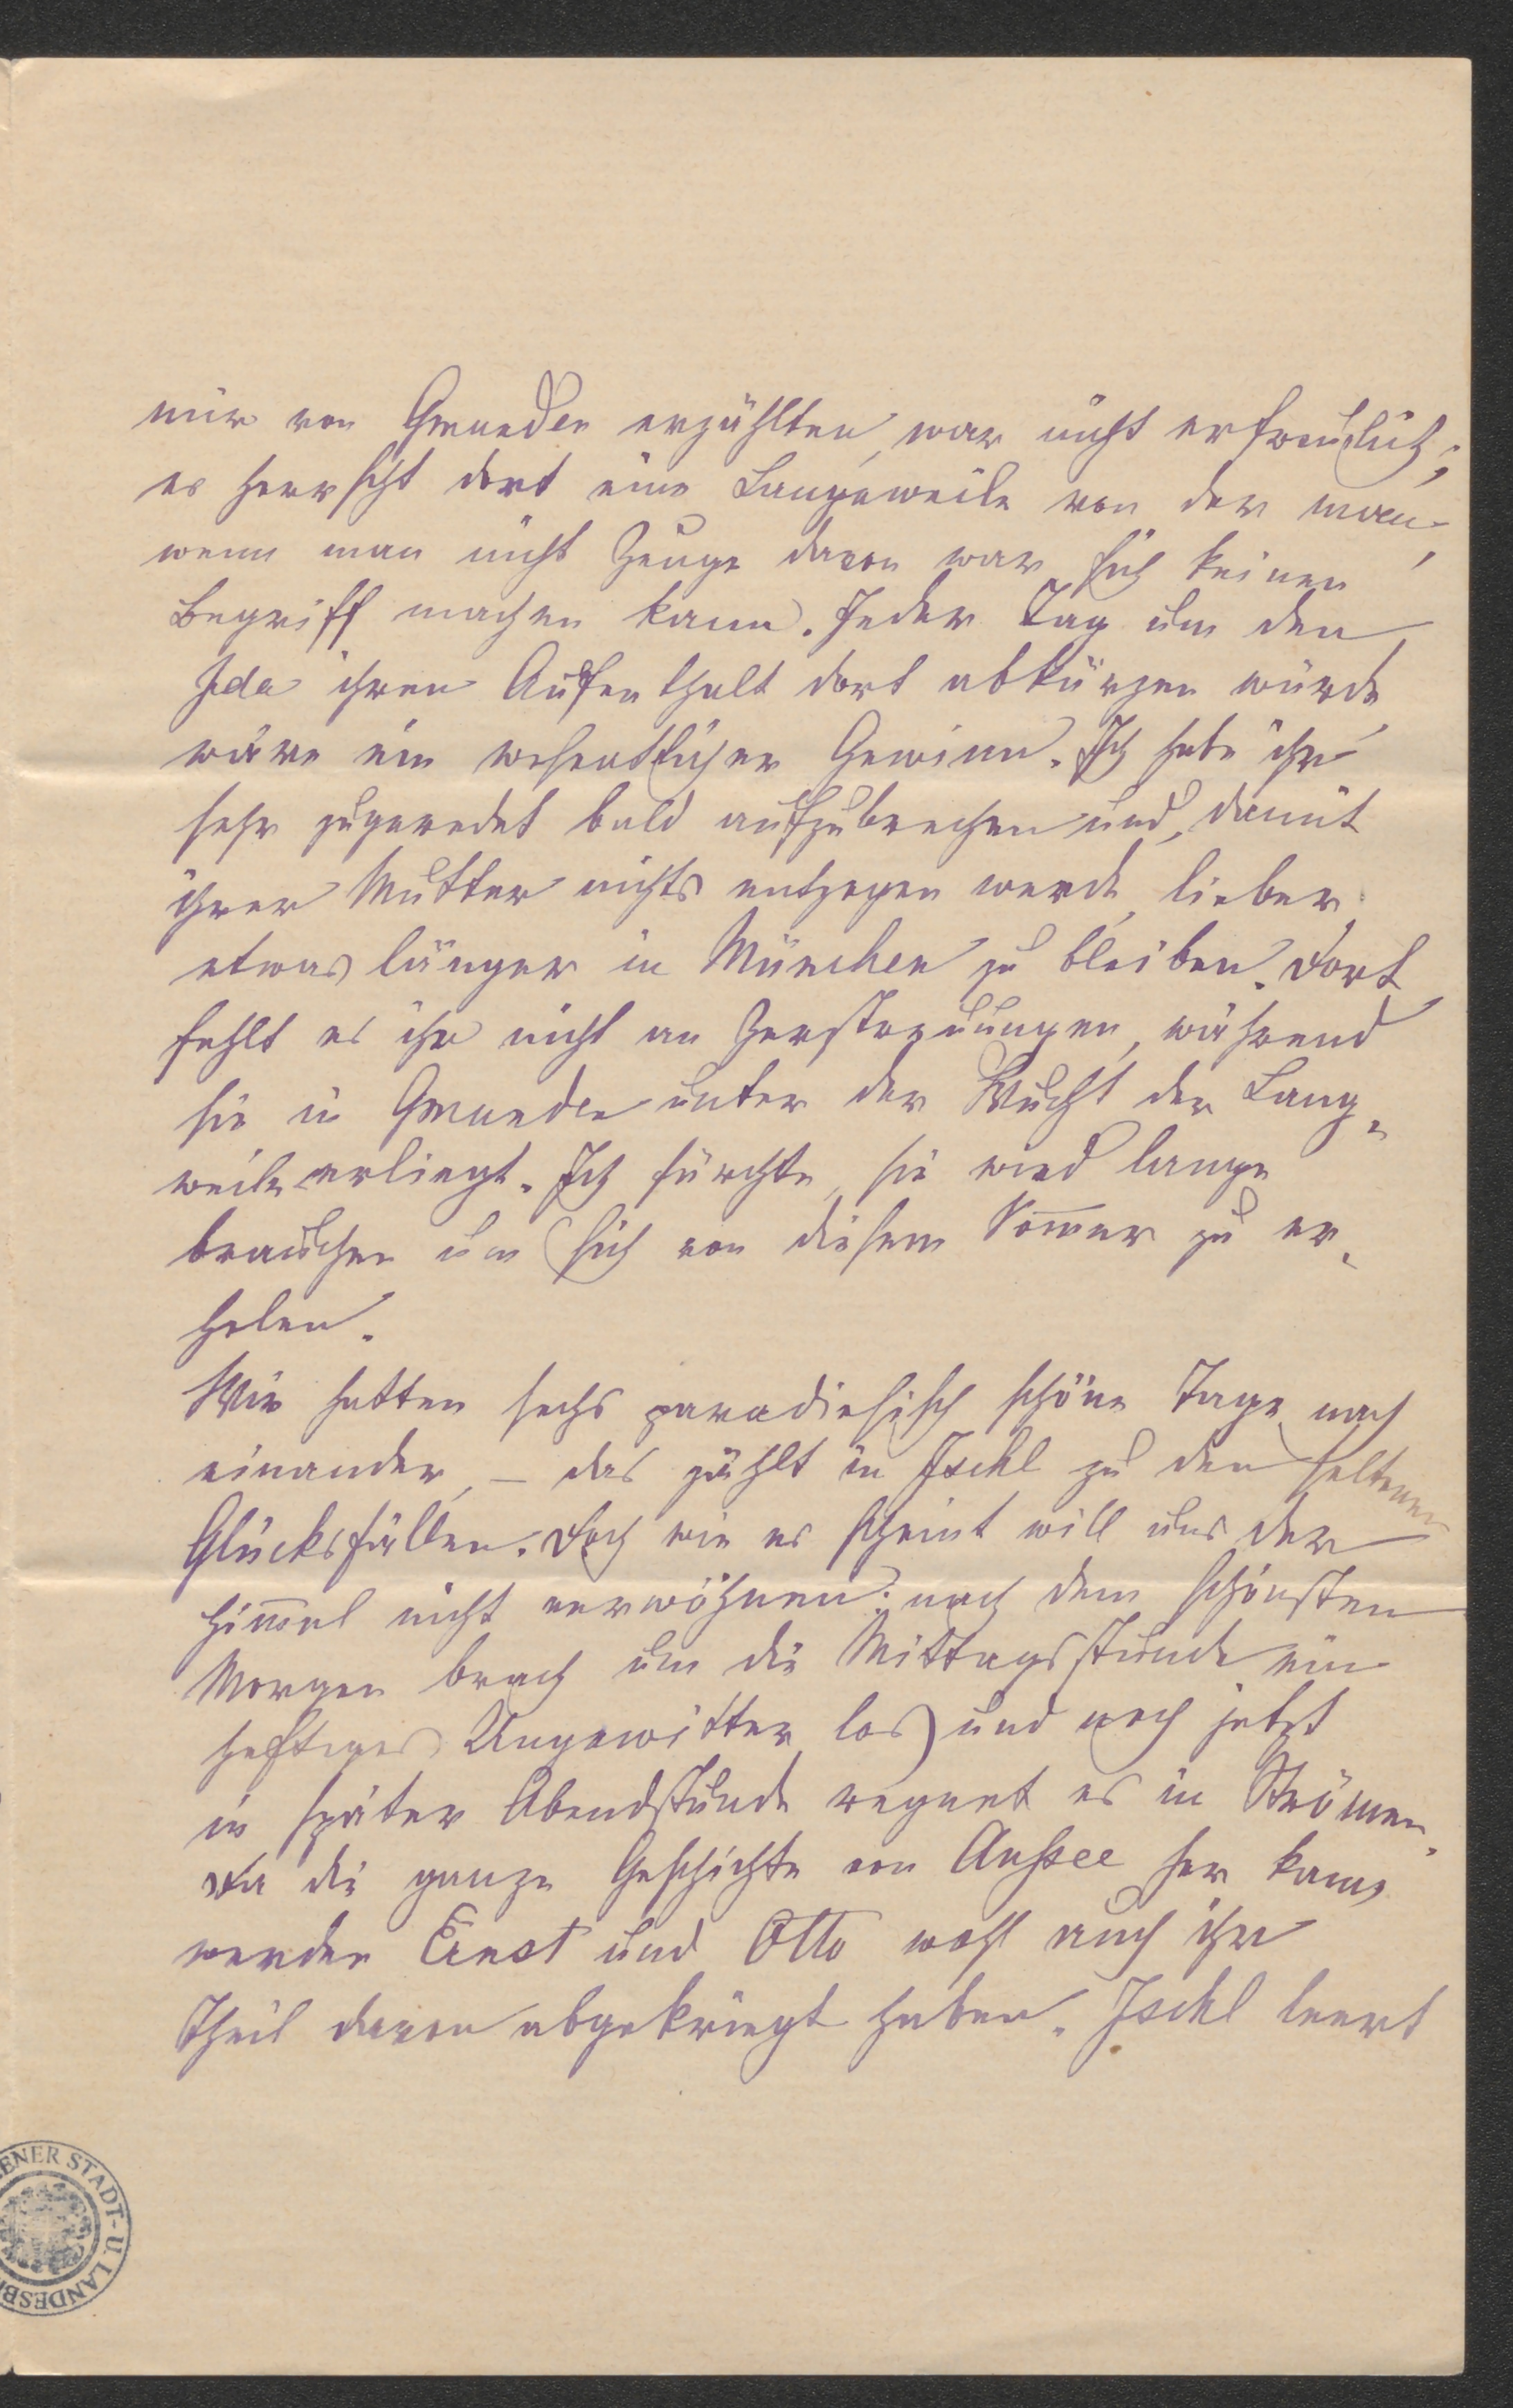 mir von Gmunden erzählten, war nicht erfreulich;
es herrscht dort eine Langeweile von der man,
wenn man nicht Zeuge davon war, sich keinen
Begriff machen kann. Jeder Tag um den
Ida ihren Aufenthalt dort abkürzen würde
wäre ein wesentlicher Gewinn. Ich habe ihr
sehr zugeredet bald aufzubrechen und, damit
ihrer Mutter nichts entzogen werde, lieber
etwas länger in München zu bleiben. Dort
fehlt es ihr nicht an Zerstreuungen, während
sie in Gmunden unter der Wucht der Lang-
weile erliegt. Ich fürchte, sie wird lange
brauchen um sich von diesem Som̅er zu er-
holen.
Wir hatten sechs paradiesisch schöne Tage nach
einander, – das zählt in Ischl zu den seltenen
Glücksfällen. Doch wie es scheint will uns der
Him̅el nicht verwöhnen: nach dem schönsten
Morgen brach um die Mittagsstunde ein
heftiges Ungewitter los und noch jetzt
in später Abendstunde regnet es in Strömen.
Da die ganze Geschichte von Aussee her kam,
werden Ernst und Otto wohl auch ihr
Theil davon abgekriegt haben. Ischl leert
ENER STADT- U. LANDESB